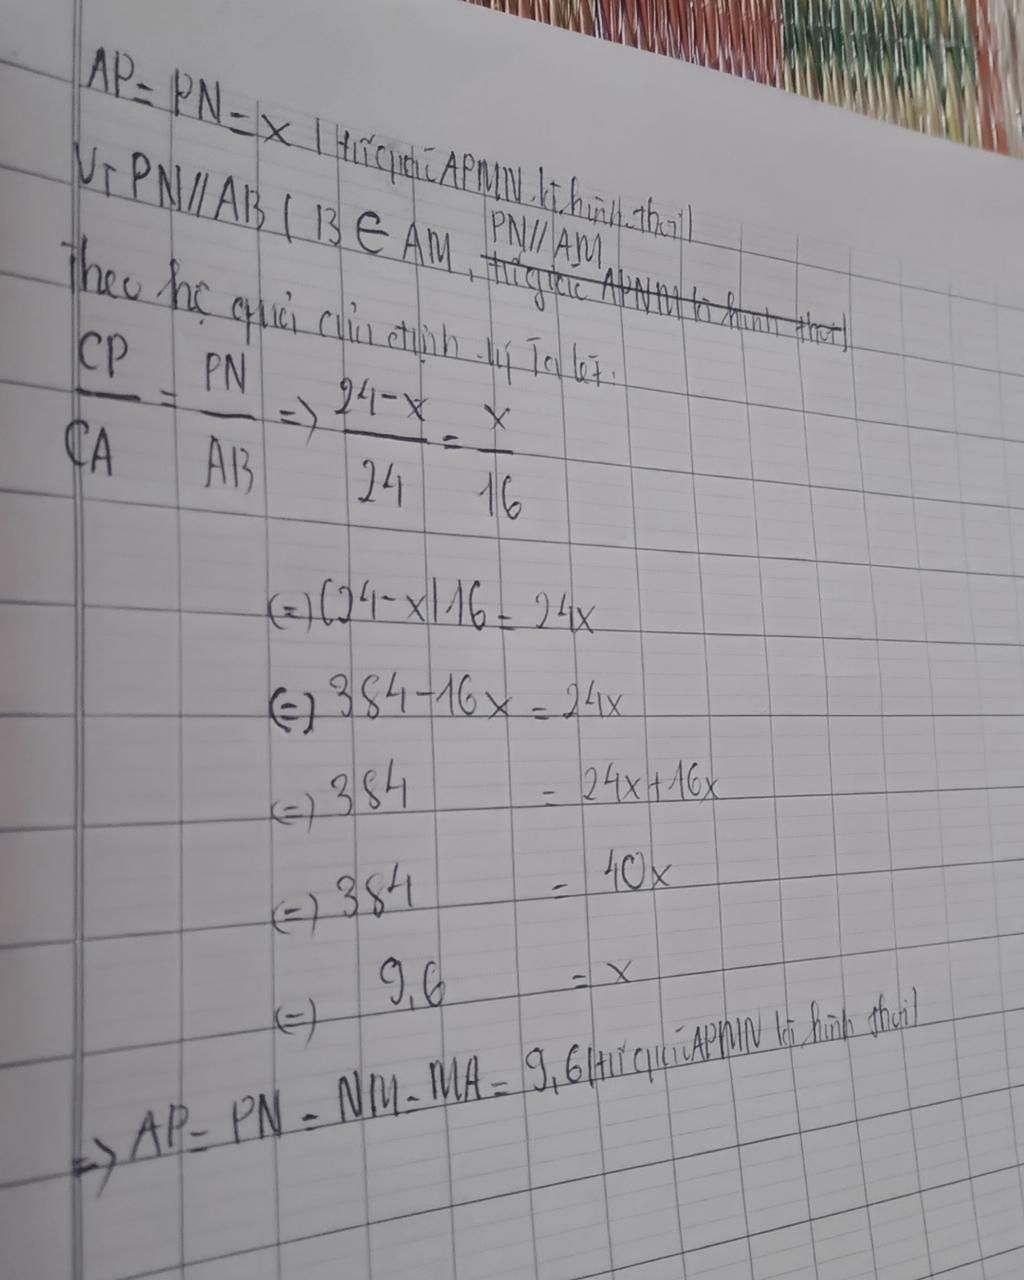 AP = PN = x (tứ giác APMN là hình thoi)
Vì PN // AB ( B ∈ AM, PN // AM
tứ giác APNM là hình thoi)
Theo hệ quả của định lý Ta let:
CP/CA = PN/AB => 24-x/24 = x/16
(=) (24-x)16 = 24x
(=) 384-16x = 24x
(=) 384 = 24x+16x
(=) 384 = 40x
(=) 9,6 = x
=> AP = PN = NM = MA = 9,6 (tứ giác APMN là hình thoi)